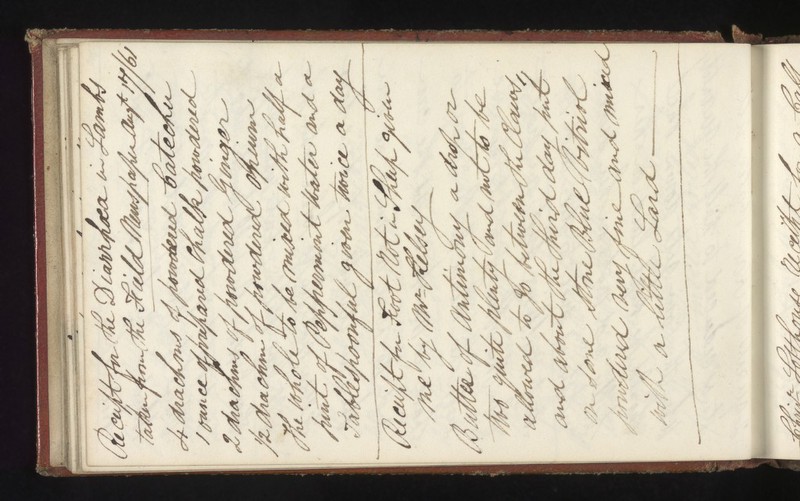 Receipt for the Diarrhœa in Lambs
taken from the Field Newspaper Augt 17/61
4 drachms of powdered Catechu
1 ounce of prepared Chalk powdered
2 drachms of powdered Ginger
1/2 drachm of powdered opium
The whole to be mixed with half a
pint of Peppermint Water and a
Tablespoonful given twice a day
Receipt for Foot Rot in Sheep given
me by Mr Kelsey
Butter of Antimony a drop or
two quite plenty and not to be
allowed to go between the Claws,
and about the third day put
on some Stone Blue Vitriol
powdered very fine and mixed
with a little Lard